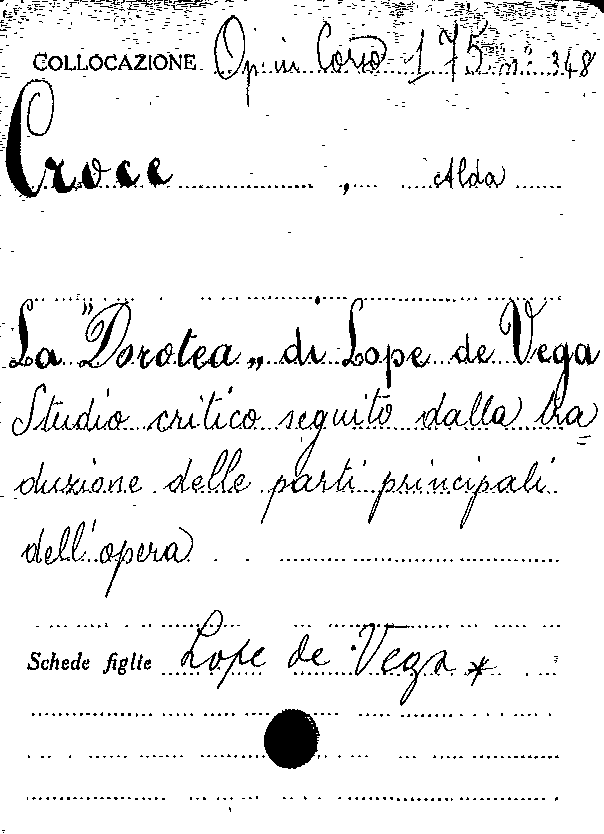 COLLOCAZIONE Op. in Corso 175 n° 348
Croce, Alda
La "Dorotea„ di Lope de Vega
Studio critico seguito dalla tra=
duzione delle parti principali
dell'opera
Schede figlie Lope de Vega *